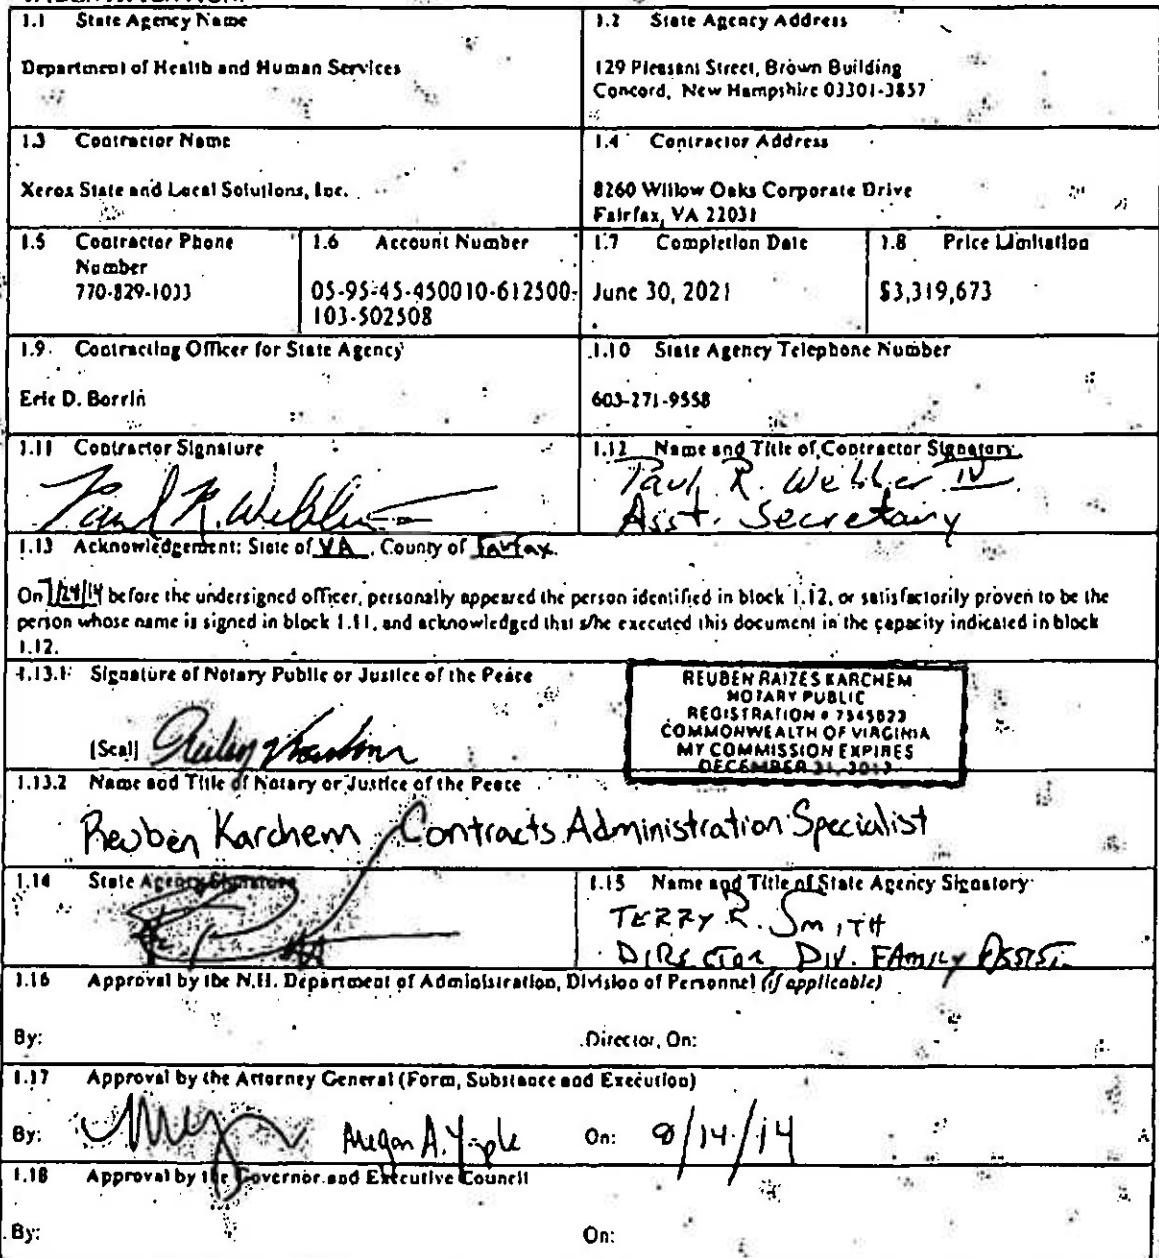 1.1 State Agency Name
Department of Health and Human Services
1.2 State Agency Address
129 Pleasant Street, Brown Building
Concord, New Hampshire 03301-3857
1.3 Contractor Name
Xerox State and Local Solutions, Inc.
1.4 Contractor Address
8260 Willow Oaks Corporate Drive
Fairfax, VA 22031
1.5 Contractor Phone
Number
770-829-1033
1.6 Account Number
05-95-45-450010-612500-
103-502508
1.7 Completion Date
June 30, 2021
1.8 Price Limitation
$3,319,673
1.9 Contracting Officer for State Agency
Eric D. Borrin
1.10 State Agency Telephone Number
603-271-9558
1.11 Contractor Signature
Paul R. Webber
1.12 Name and Title of Contractor Signatory
Paul R. Webber IV
Asst. Secretary
1.13 Acknowledgement: State of VA, County of Fairfax.
On 7/24/14 before the undersigned officer, personally appeared the person identified in block 1.12, or satisfactorily proven to be the
person whose name is signed in block 1.11, and acknowledged that s/he executed this document in the capacity indicated in block
1.12.
1.13.1 Signature of Notary Public or Justice of the Peace
[Seal]
REUBEN RAIZES KARCHEM
NOTARY PUBLIC
REGISTRATION # 7545823
COMMONWEALTH OF VIRGINIA
MY COMMISSION EXPIRES
DECEMBER 31,
1.13.2 Name and Title of Notary or Justice of the Peace
Reuben Karchem, Contracts Administration Specialist
1.14 State Agency Signature
1.15 Name and Title of State Agency Signatory
TERRY R. SMITH
DIRECTOR DIV. FAMILY ASSIST.
1.16 Approval by the N.H. Department of Administration, Division of Personnel (if applicable)
By: Director, On:
1.17 Approval by the Attorney General (Form, Substance and Execution)
By: Megan A. Yaple On: 8/14/14
1.18 Approval by the Governor and Executive Council
By: On: